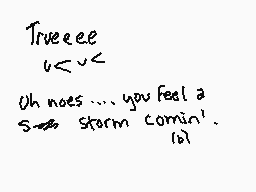 Trueeee
v<v<
Uh noes.... you feel a
storm comin'.
(b)